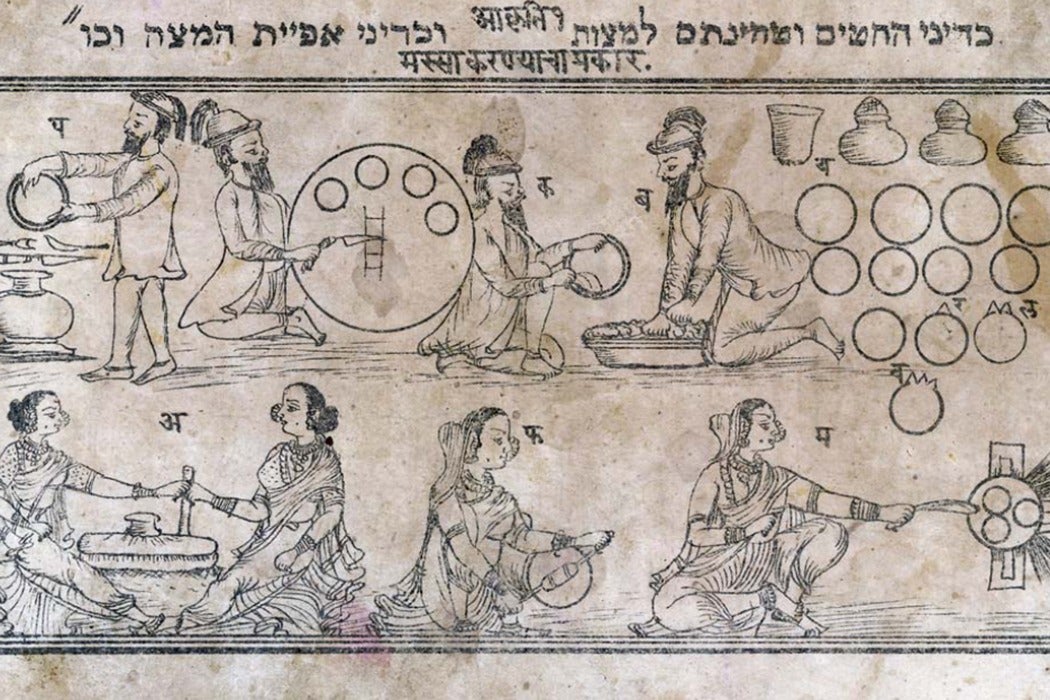 כדיני החטים וטחינתם למצות आकृति १ וכדיני אפיית המצה וכו״
मस्सा करण्याचा प्रकार.
प
क
ब
ब
अ
फ
म